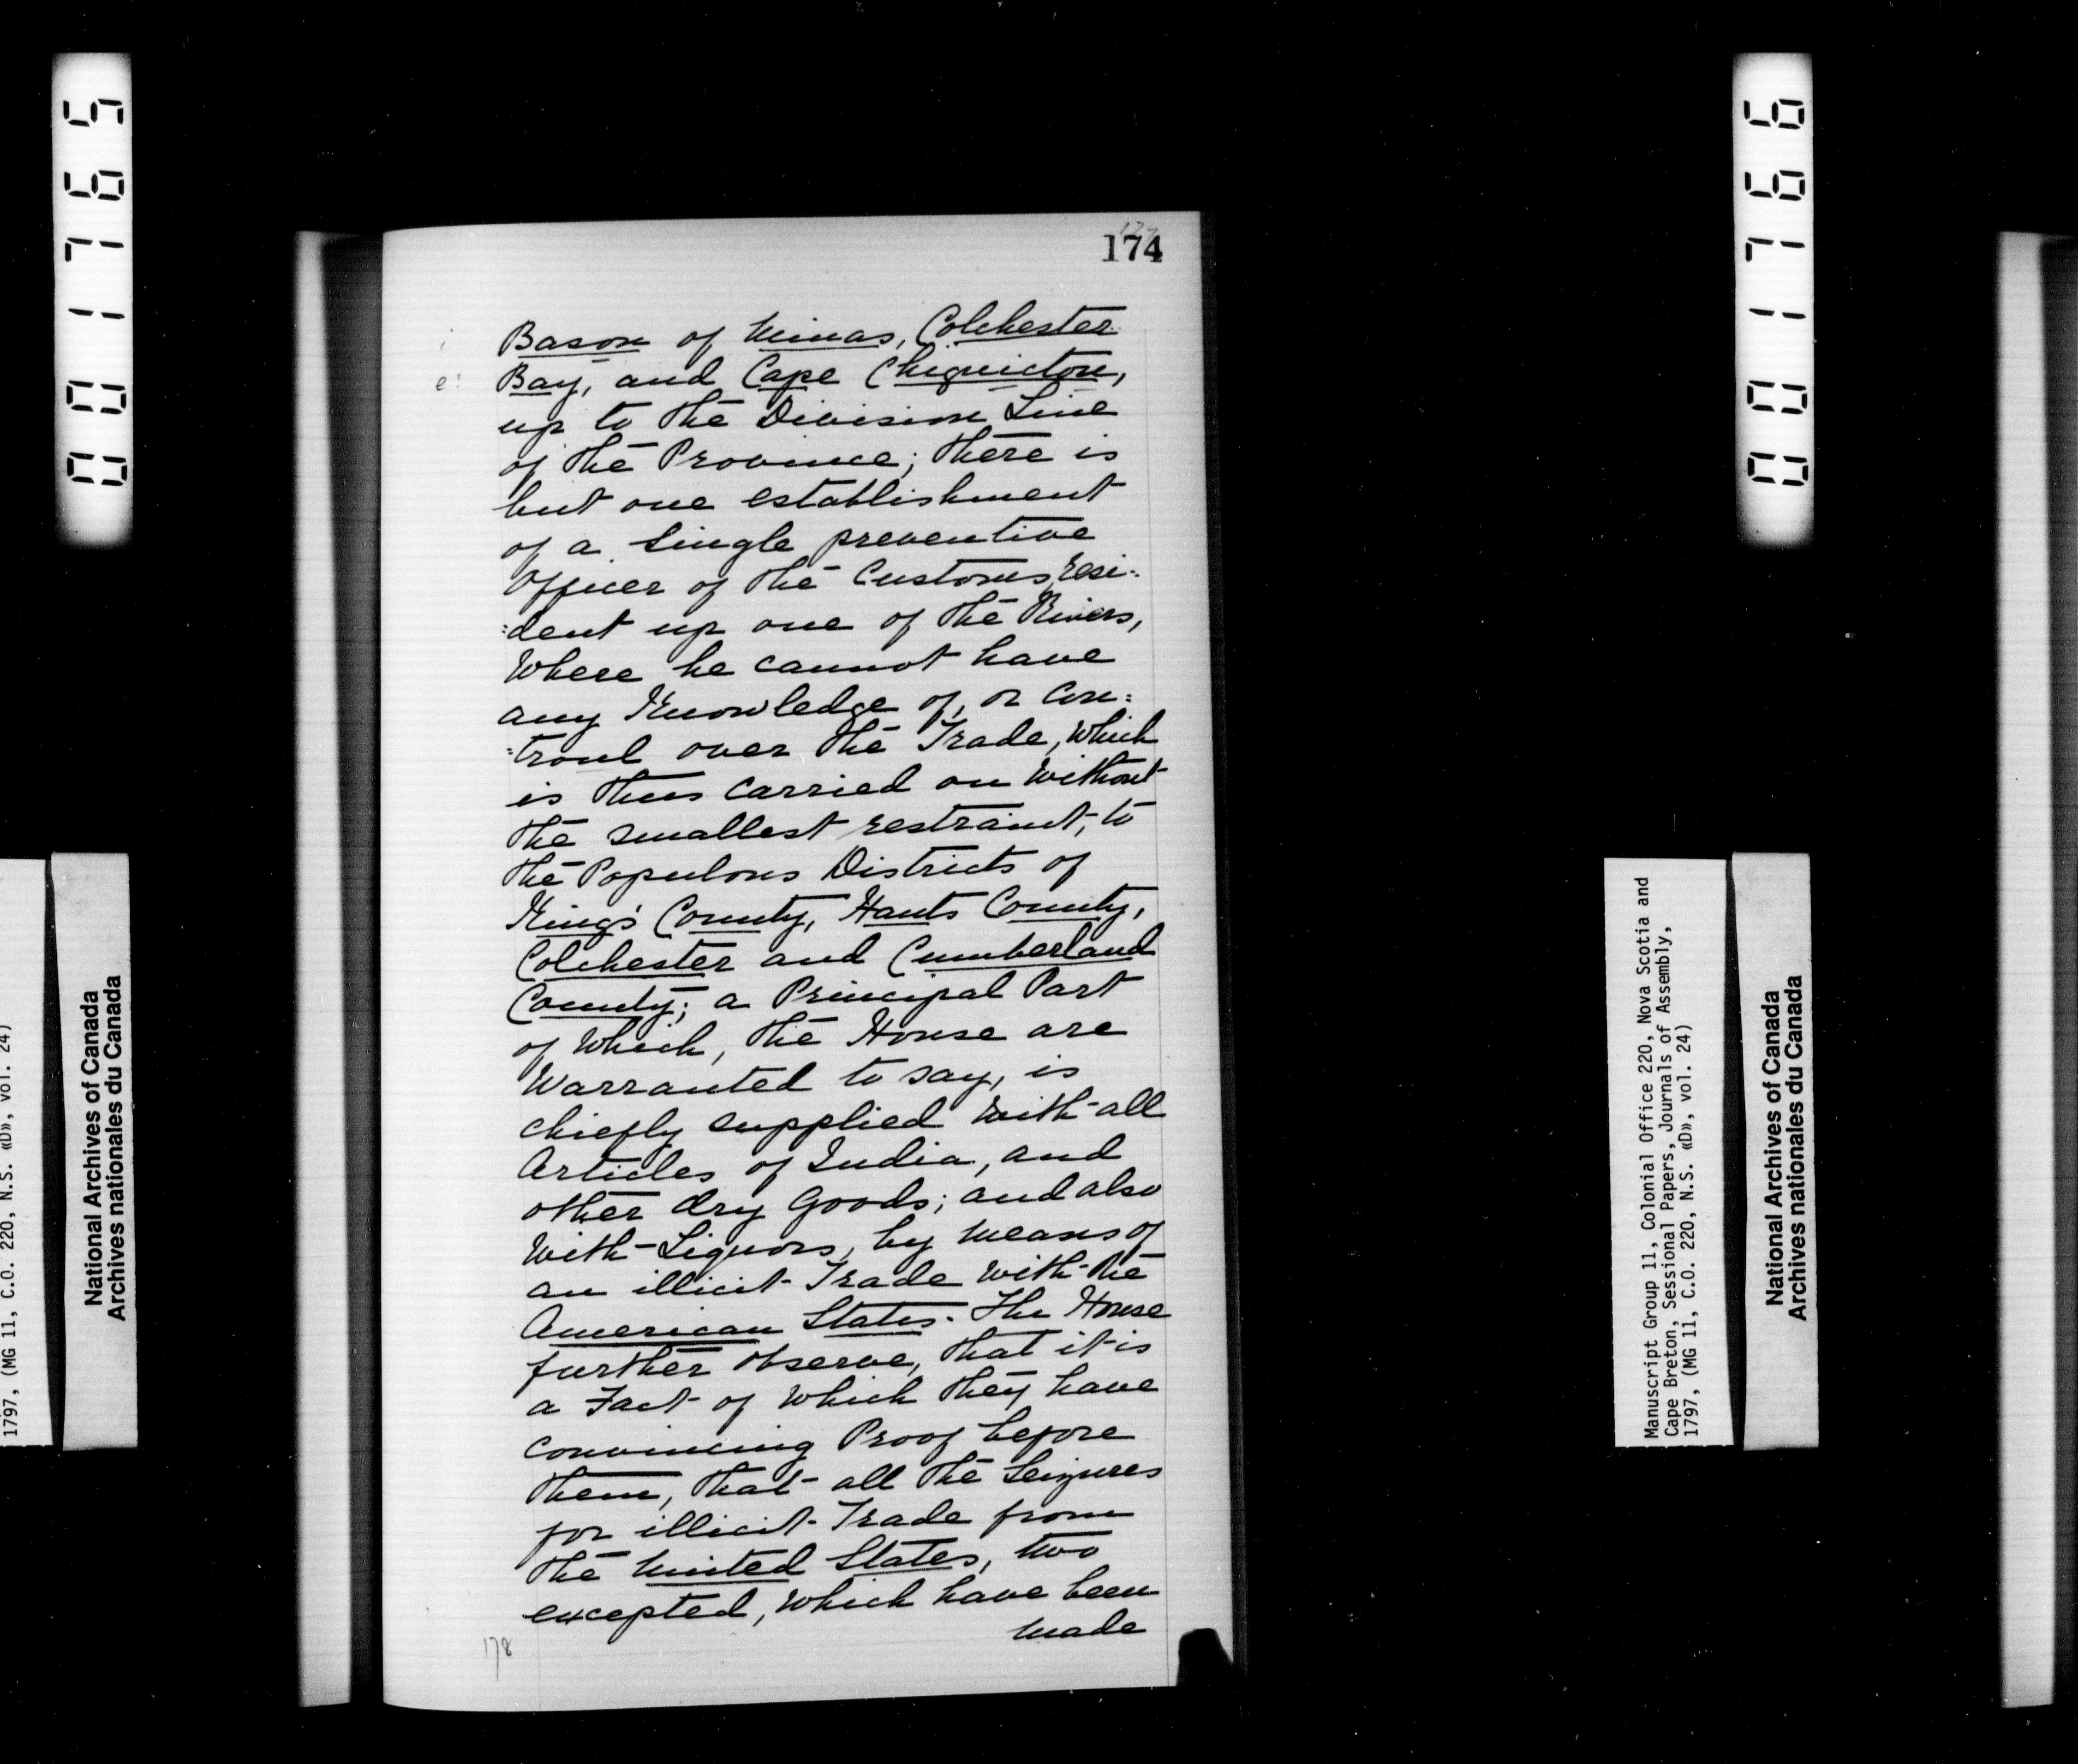 001765
001766
174
174
Bason of Minas, Colchester
Bay, and Cape Chignicton,
up to the Division Line
of the Province; there is
but one establishment
of a single preventive
Officer of the Customs, resi=
=dent up one of the Rivers,
Where he cannot have
any Knowledge of, or Con=
=troul over the Trade, which
is thus carried on without
the smallest restraint, to
the Populous Districts of
King's County, Hants County,
Colchester and Cumberland
County; a Principal Part
of which, the House are
Warranted to say, is
chiefly supplied with all
Articles of India, and
other dry Goods; and also
with Liquors, by means of
an illicit Trade with the
American States. The House
further observe, that it is
a Fact of which they have
convincing Proof before
them, that all the Seizures
for illicit Trade from
the United States, two
excepted, which have been
made
178
1797, (MG 11, C.O. 220, N.S. «D», vol. 24)
National Archives of Canada
Archives nationales du Canada
Manuscript Group 11, Colonial Office 220, Nova Scotia and
Cape Breton, Sessional Papers, Journals of Assembly,
1797, (MG 11, C.O. 220, N.S. «D», vol. 24)
National Archives of Canada
Archives nationales du Canada